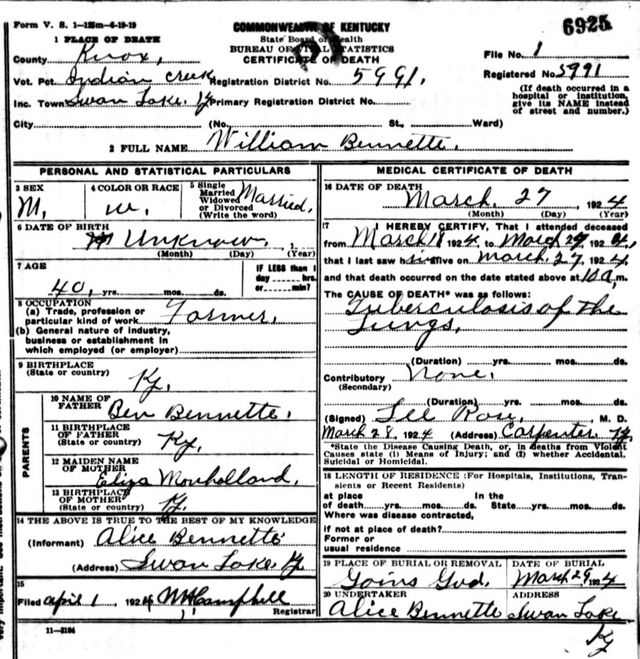 Form V. S. 1-125m-6-19-19
COMMONWEALTH OF KENTUCKY
6925
1 PLACE OF DEATH
State Board of Health
BUREAU OF VITAL STATISTICS
CERTIFICATE OF DEATH
County Knox,
File No. 1
Vot. Pct. Indian Creek Registration District No. 5991.
Registered No. 5991
Inc. Town Swan Lake, Ky Primary Registration District No.
(If death occurred in a hospital or institution, give its NAME instead of street and number.)
City (No. St., Ward)
2 FULL NAME William Bennette.
PERSONAL AND STATISTICAL PARTICULARS
3 SEX
M.
4 COLOR OR RACE
w.
5 Single
Married
Widowed
or Divorced
(Write the word)
Married.
6 DATE OF BIRTH
Unknown. 1
(Month) (Day) (Year)
7 AGE
40, yrs. mos. ds.
IF LESS than 1
day hrs.
or min?
8 OCCUPATION
(a) Trade, profession or
particular kind of work Farmer.
(b) General nature of industry,
business or establishment in
which employed (or employer)
9 BIRTHPLACE
(State or country)
Ky.
PARENTS
10 NAME OF
FATHER
Ben Bennette.
11 BIRTHPLACE
OF FATHER
(State or country)
Ky.
12 MAIDEN NAME
OF MOTHER
Eliza Monholland.
13 BIRTHPLACE
OF MOTHER
(State or country)
Ky.
14 THE ABOVE IS TRUE TO THE BEST OF MY KNOWLEDGE
(Informant) Alice Bennette
(Address) Swan Lake, Ky
15
Filed April 1 1924 Campbell
Registrar
11-3184
MEDICAL CERTIFICATE OF DEATH
16 DATE OF DEATH
March. 27 , 1924
(Month) (Day) (Year)
17 I HEREBY CERTIFY, That I attended deceased
from March 18 1924, to March 27 1924,
that I last saw alive on March 27, 1924
and that death occurred on the date stated above at 10 a.m.
The CAUSE OF DEATH* was as follows:
Tuberculosis of the
Lungs.
(Duration) yrs. mos. ds.
Contributory None.
(Secondary)
(Duration) yrs. mos. ds.
(Signed) Lee Rose, M. D.
March 28, 1924 (Address) Carpenter Ky.
*State the Disease Causing Death, or, in deaths from Violent
Causes state (1) Means of Injury; and (2) whether Accidental,
Suicidal or Homicidal.
18 LENGTH OF RESIDENCE (For Hospitals, Institutions, Transients or Recent Residents)
at place In the
of death yrs. mos. ds. State yrs. mos. ds.
Where was disease contracted,
if not at place of death?
Former or
usual residence
19 PLACE OF BURIAL OR REMOVAL
Goins Gvd.
DATE OF BURIAL
March 29, 1924
20 UNDERTAKER
Alice Bennette
ADDRESS
Swan Lake
Ky